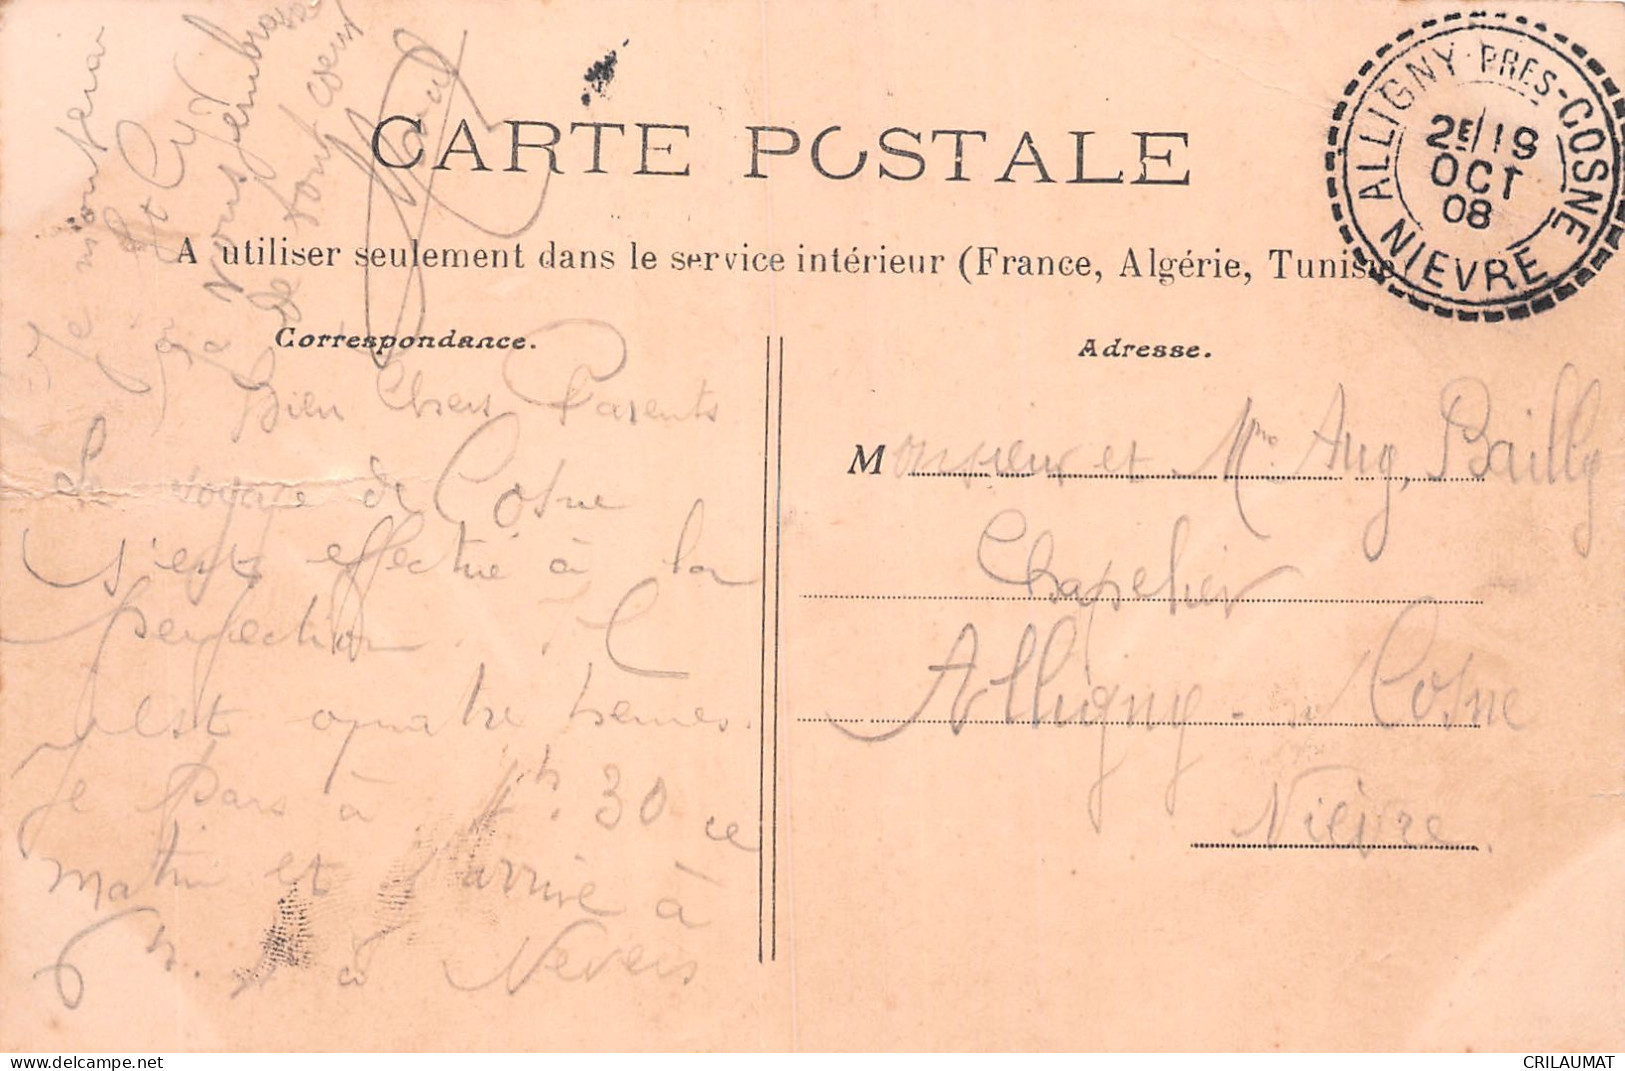 CARTE POSTALE
A utiliser seulement dans le service intérieur (France, Algérie, Tunisie
ALLIGNY-PRES-COSNE
2E/19
OCT
08
NIEVRE
Correspondance.
Adresse.
Bien Chers Parents
Le voyage de Cosne
s'est effectué à la
perfection. Il
est quatre heures.
Je pars à 4h. 30 ce
matin et arrive à
6 h. à Nevers
Je
Je vous embrasse
de tout coeur
Monsieur et Mme Aug, Bailly
Chapelier
Alligny - Cosne
Nièvre.
www.delcampe.net
CRILAUMAT